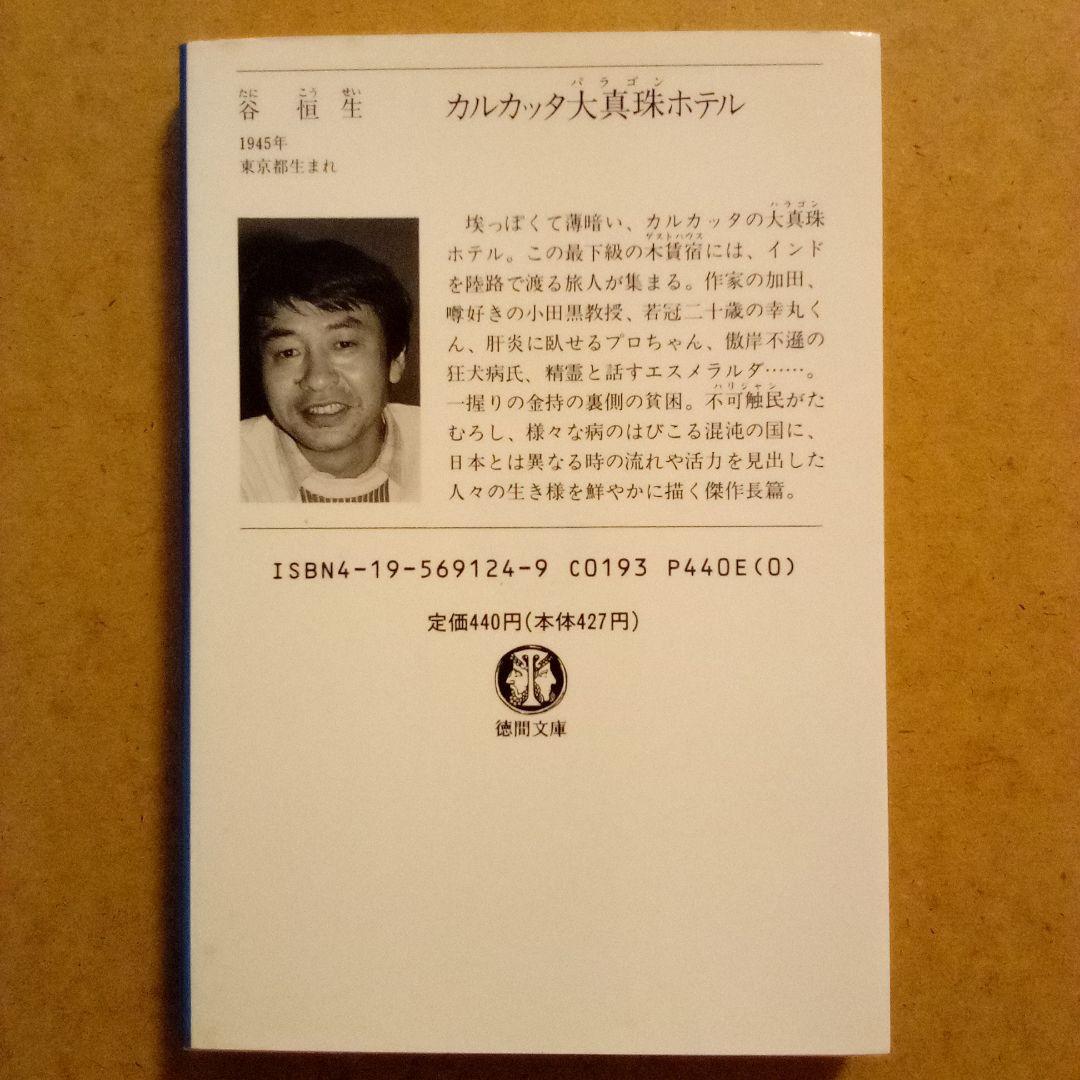 たに こう せい
谷 恒 生
1945年
東京都生まれ
パラゴン
カルカッタ大真珠ホテル
パラゴン
埃っぽくて薄暗い、カルカッタの大真珠
ゲストハウス
ホテル。この最下級の木賃宿には、インド
を陸路で渡る旅人が集まる。作家の加田、
噂好きの小田黒教授、若冠二十歳の幸丸く
ん、肝炎に臥せるプロちゃん、傲岸不遜の
狂犬病氏、精霊と話すエスメラルダ……。
ハリジャン
一握りの金持の裏側の貧困。不可触民がた
むろし、様々な病のはびこる混沌の国に、
日本とは異なる時の流れや活力を見出した
人々の生き様を鮮やかに描く傑作長篇。
ISBN4-19-569124-9 C0193 P440E(0)
定価440円(本体427円)
徳間文庫